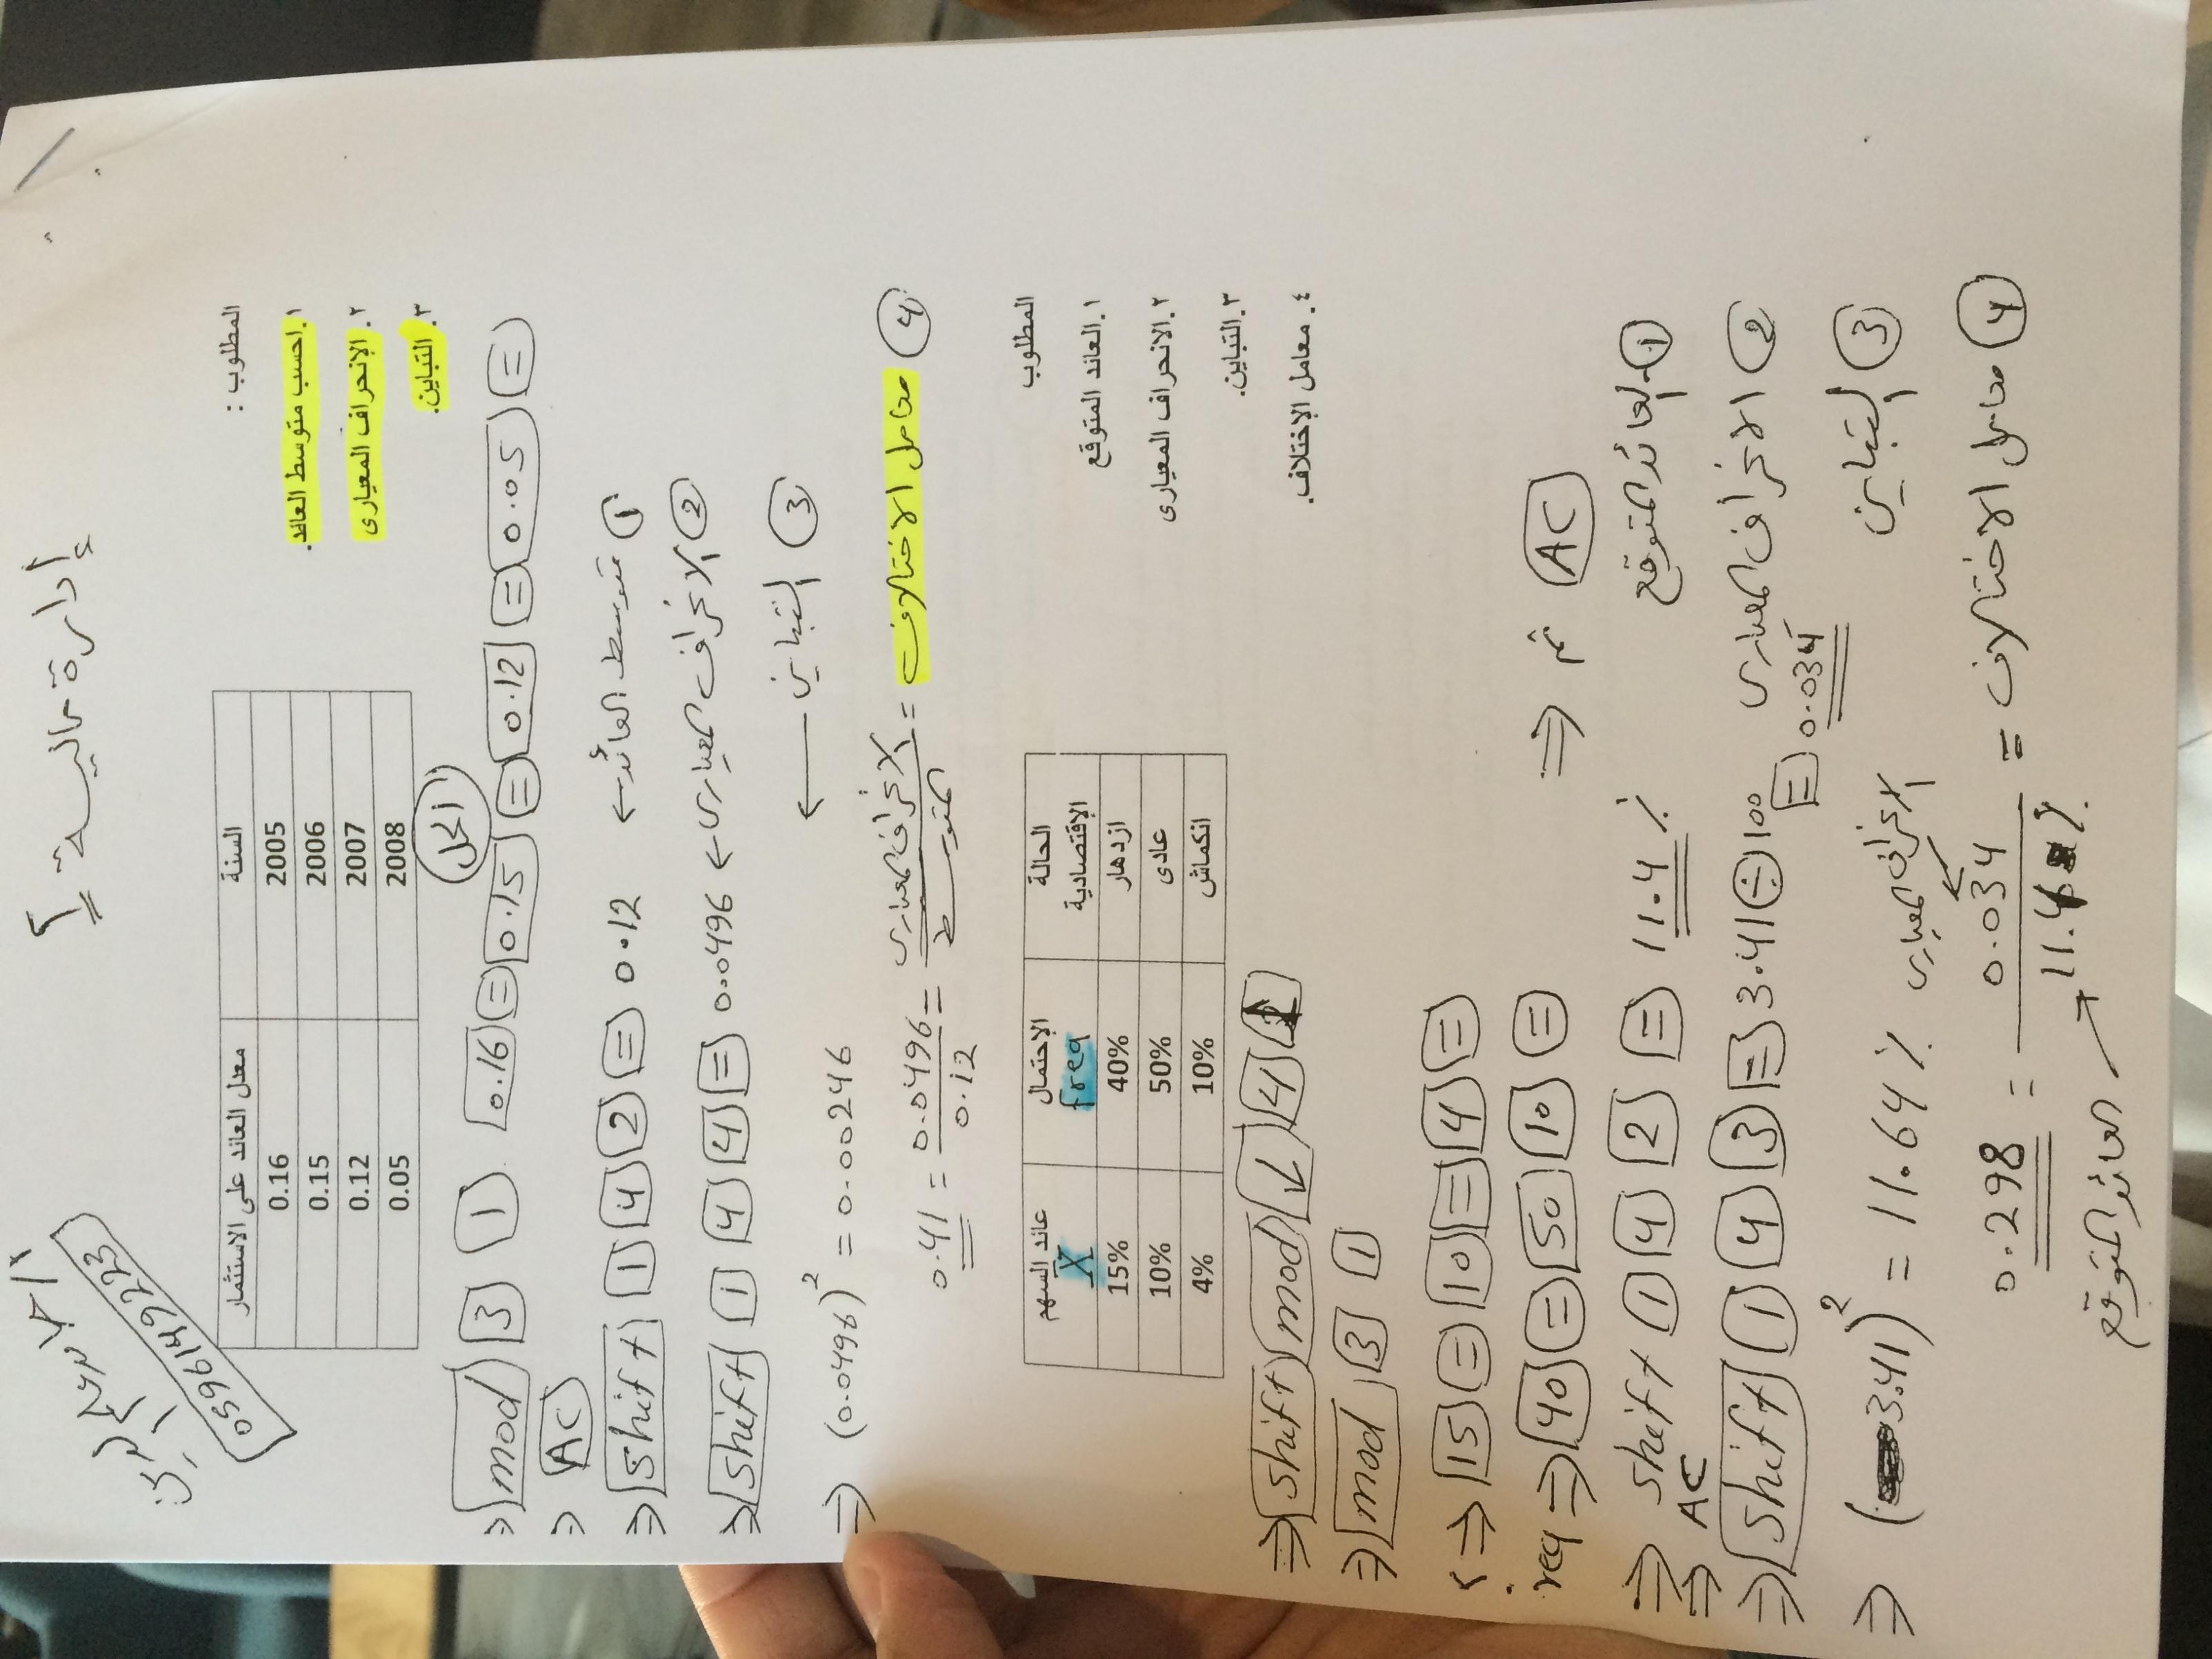 إدارة مالية أ
0596149223
المطلوب :
١.احسب متوسط العائد.
٢.الإنحراف المعيارى
٣.التباين.
السنة معدل العائد على الاستثمار
2005 0.16
2006 0.15
2007 0.12
2008 0.05
الحل
⇒ mod 3 1 0.16 = 0.15 = 0.12 = 0.05 =
⇒ AC
⇒ shift 1 4 2 = 0.12 ← متوسط العائد ①
⇒ shift 1 4 4 = 0.0496 ← الانحراف المعيارى ②
⇒ (0.0496)² = 0.00246 ← التباين ③
0.41 = 0.0496 / 0.12 = الانحراف المعيارى / المتوسط = معامل الاختلاف ④
المطلوب
١.العائد المتوقع
٢.الانحراف المعيارى
٣.التباين.
٤. معامل الإختلاف.
الحالة الإقتصادية الإحتمال freq عائد السهم X
ازدهار 40% 15%
عادى 50% 10%
انكماش 10% 4%
⇒ shift mod ↓ 4 1
⇒ mod 3 1
⇒ 15 = 10 = 4 =
req ⇒ 40 = 50 10 = ⇒ ثم AC
⇒ shift 1 4 2 = 11.4 % العائد المتوقع ①
⇒ AC
⇒ shift 1 4 3 = 3.41 ÷ 100 = 0.034 الانحراف المعيارى ②
⇒ (3.41)² = 11.64 % التباين ③
الانحراف المعيارى
0.298 = 0.034 / 11.4 % = معامل الاختلاف ④
العائد المتوقع